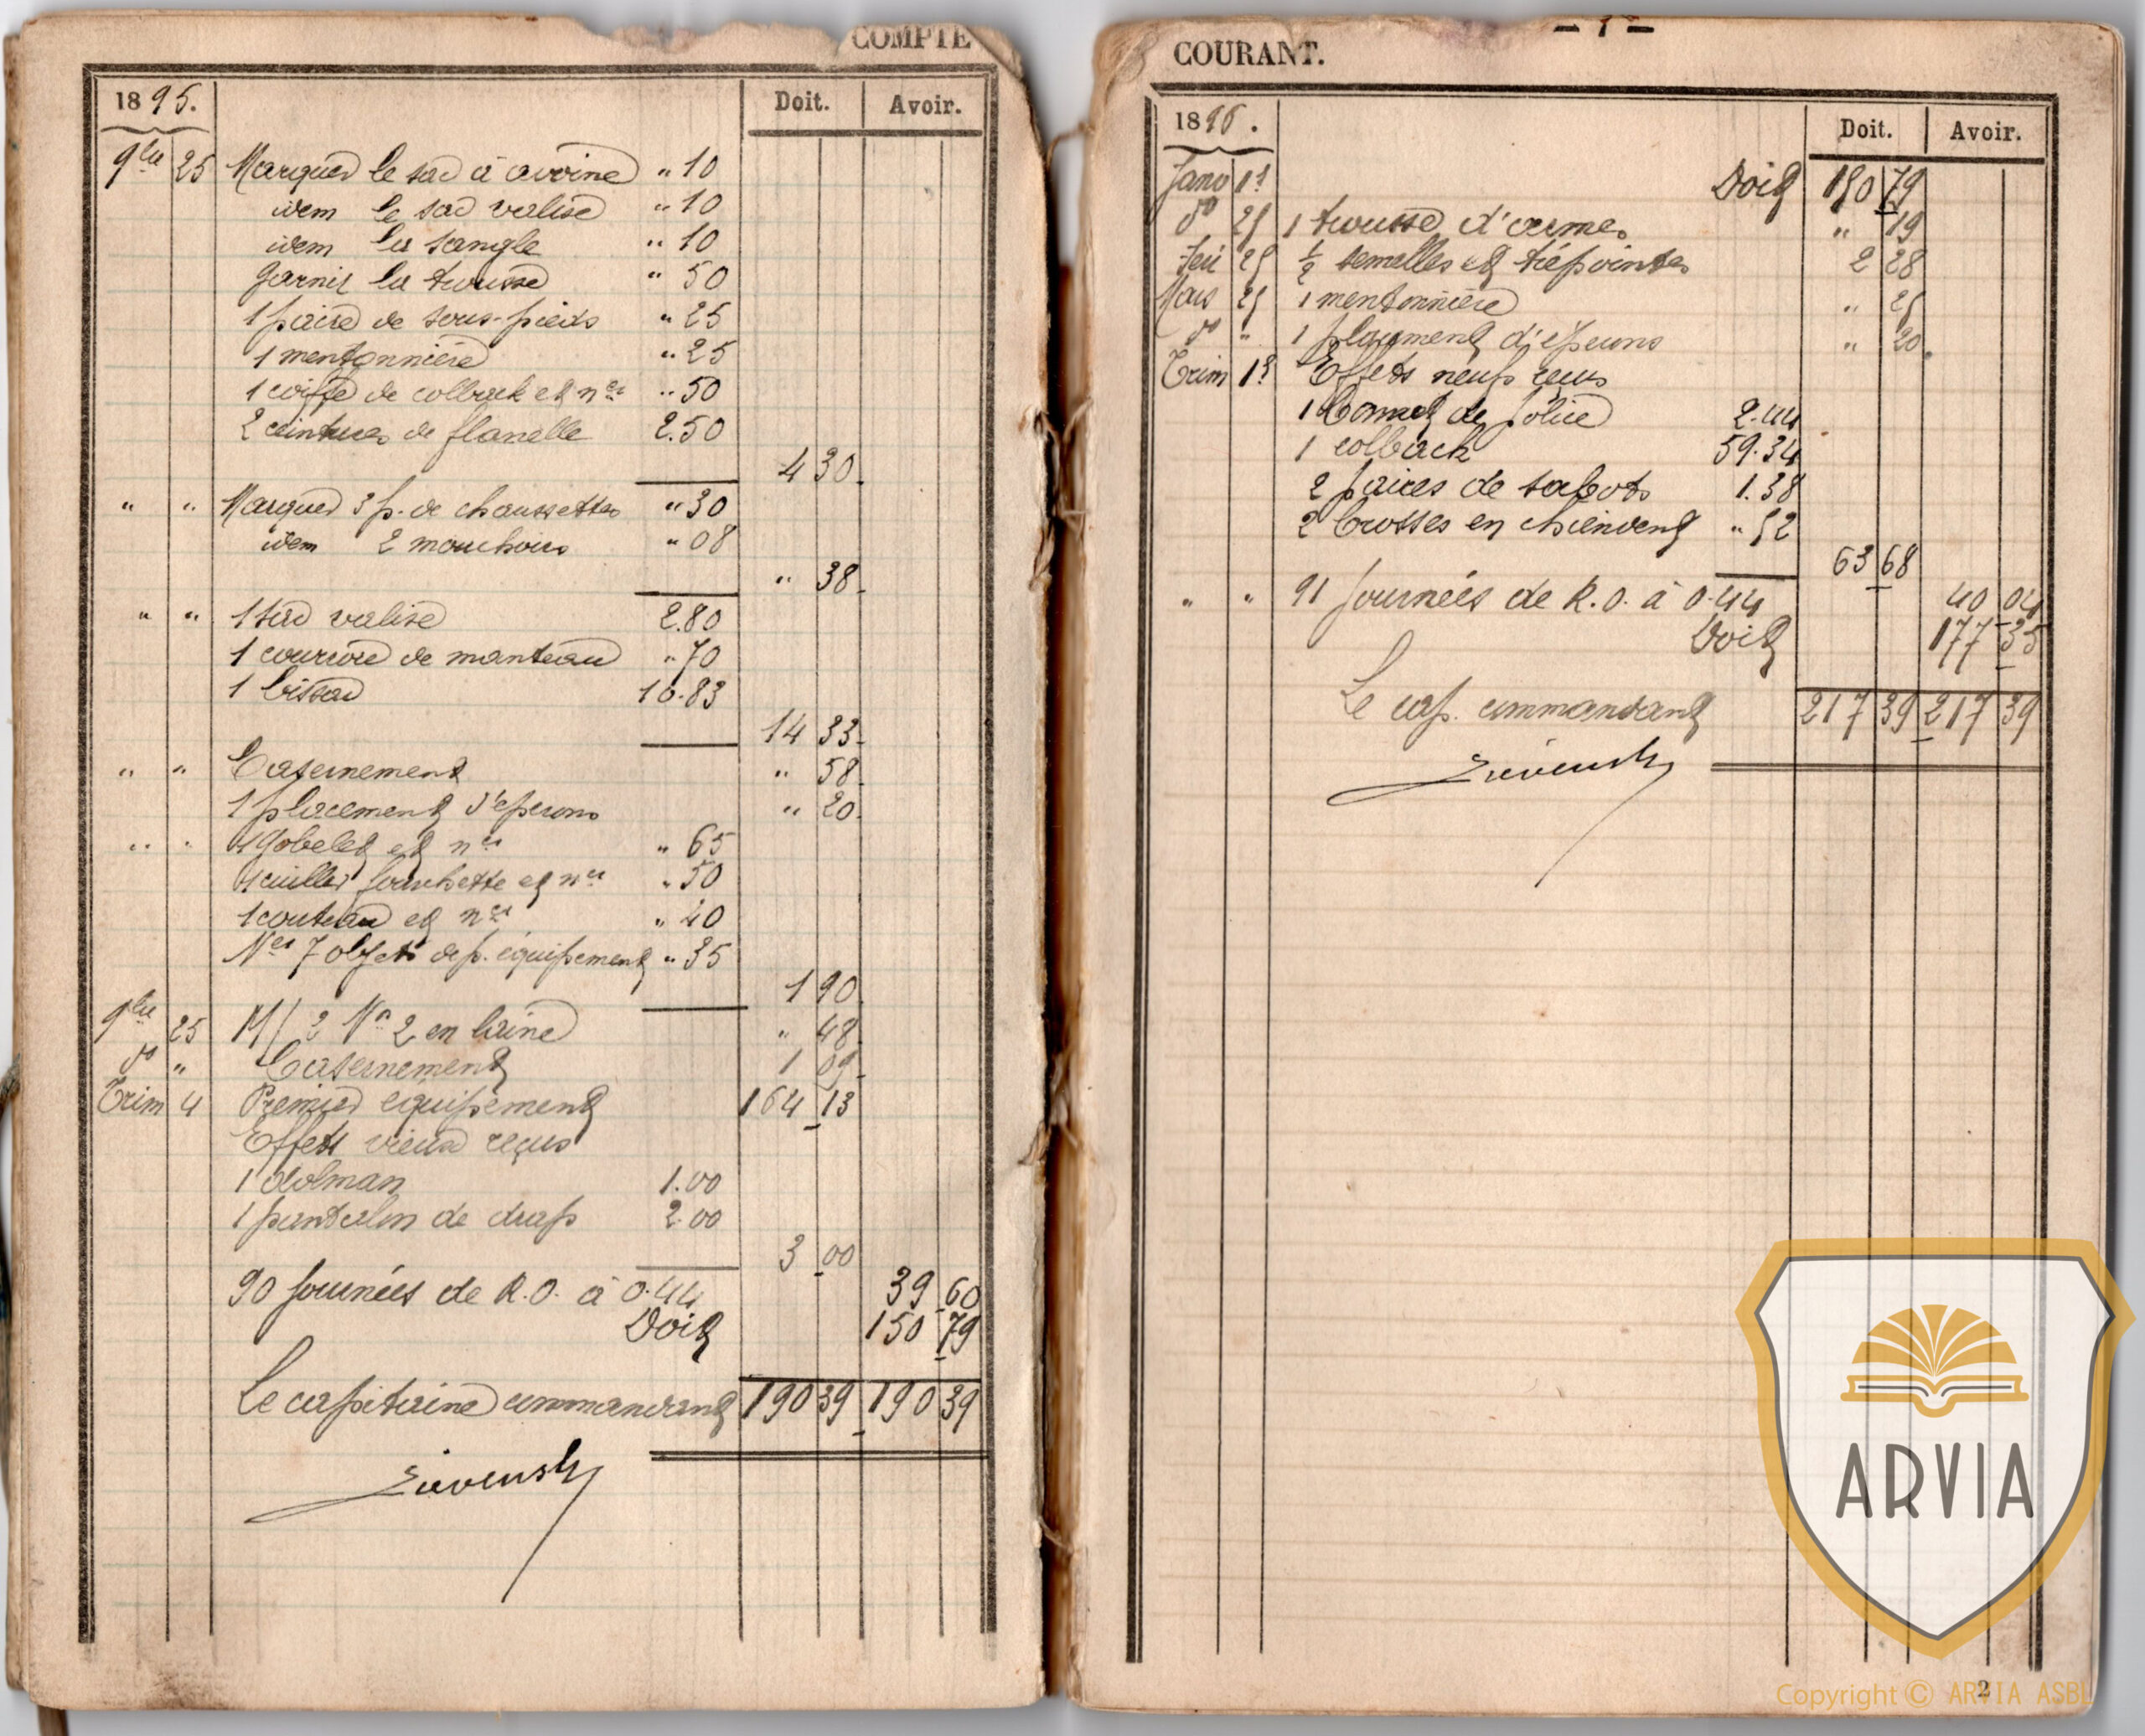 COMPTE
1895.
Doit. Avoir.
9bre 25 Marquer le sac à avoine " 10
idem le sac valise " 10
idem la sangle " 10
garnir la trousse " 50
1 paire de sous-pieds " 25
1 mentonnière " 25
1 coiffe de colback et nos " 50
2 ceintures de flanelle 2.50
4 30
" " Marquer 3 p. de chaussettes " 30
idem 2 mouchoirs " 08
" 38
" " 1 sac valise 2.80
1 courroie de manteau " 70
1 bissac 10.83
14 33
" " Casernement " 58
1 placement d'éperons " 20
" " 1 gobelet et nos " 65
1 cuiller fourchette et nos " 50
1 couteau et nos " 40
Nos 7 objets de p. équipement " 35
1 90
9bre 25 M/ 2 No 2 en laine " 48
do " Casernement 1 09
Trim 4 Premier équipement 164 13
Effets vieux reçus
1 dolman 1.00
1 pantalon de drap 2.00
3 00
90 journées de R.O. à 0.44 39 60
Doit 150 79
Le capitaine commandant 190 39 190 39
COURANT.
- 1 -
1896.
Doit. Avoir.
Janv 1r Doit 150 79
do 25 1 trousse d'armes " 19
Fév 25 ½ semelles et trépointes 2 28
Mars 25 1 mentonnière " 25
do " 1 placement d'éperons " 20
Trim 1r Effets neufs reçus
1 Bonnet de police 2.44
1 colback 59.34
2 paires de sabots 1.38
2 brosses en chiendent " 52
63 68
" " 91 journées de R.O. à 0.44 40 04
Doit 177 35
Le cap. commandant 217 39 217 39
2
ARVIA
Copyright © ARVIA ASBL